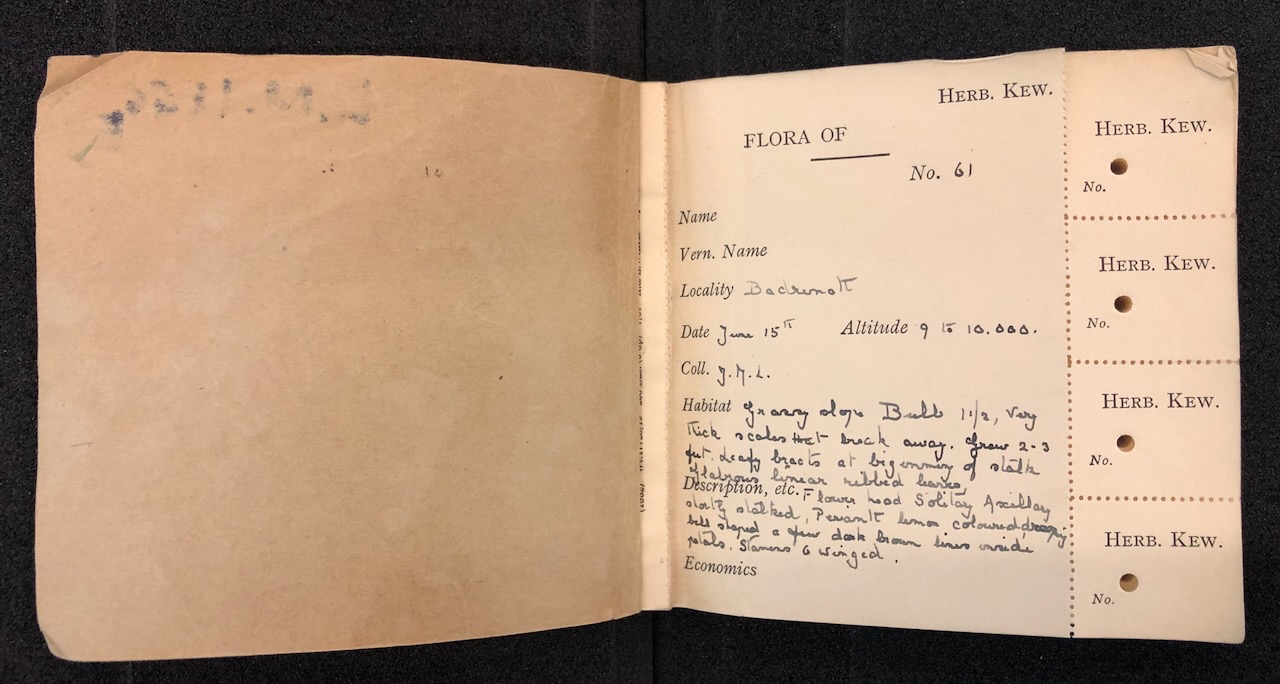 HERB. KEW.
FLORA OF
No. 61
Name
Vern. Name
Locality Badrinath
Date June 15th Altitude 9 to 10.000.
Coll. J.M.L.
Habitat Grassy slope Bulb 1 1/2, very
thick scales that break away. Grew 2-3
feet. Leafy bracts at beginning of stalk
Glabrous linear ribbed leaves,
Description, etc. Flower head Solitary Axillary
stalked, Perianth lemon coloured drooping
bell shaped a few dark brown lines inside
petals. Stamens 6 winged.
Economics
HERB. KEW.
No.
HERB. KEW.
No.
HERB. KEW.
No.
HERB. KEW.
No.